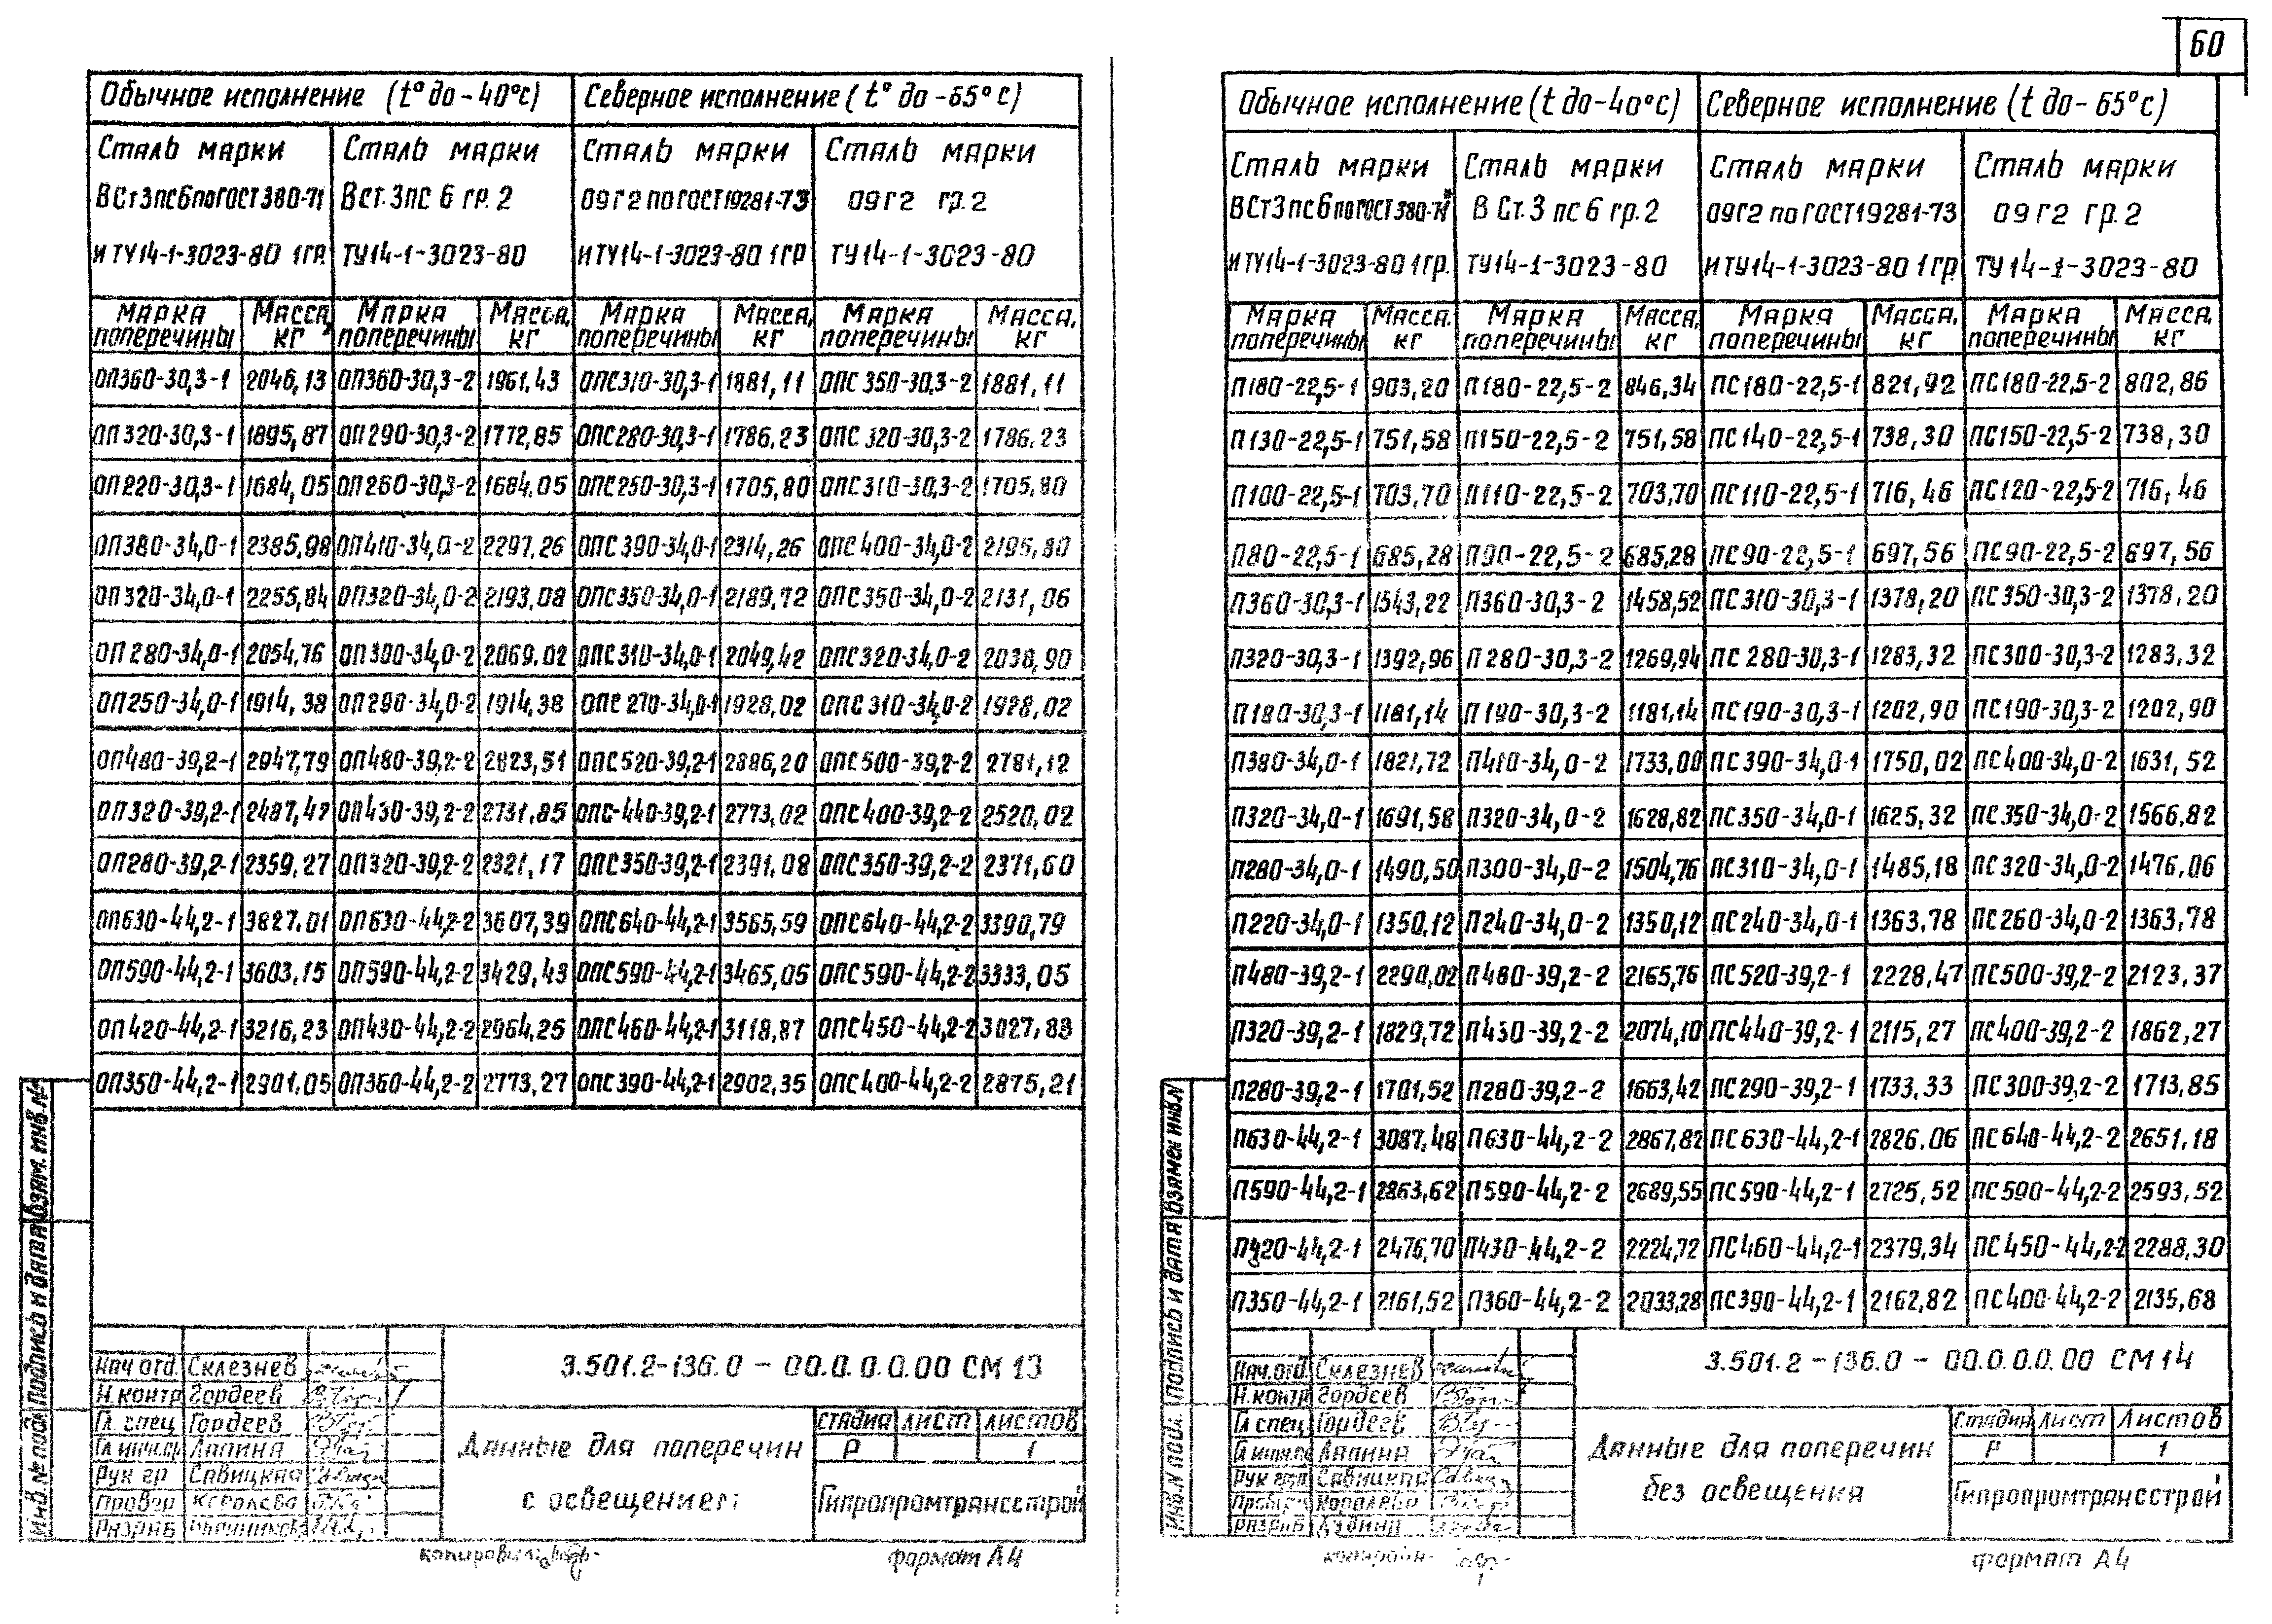 60
Обычное исполнение (t° до -40°с) Северное исполнение (t° до -65°с)
Сталь марки Сталь марки Сталь марки Сталь марки
ВСт3пс6 по ГОСТ 380-71 ВСт.3пс 6 гр.2 09Г2 по ГОСТ 19281-73 09Г2 гр.2
и ТУ14-1-3023-80 1гр. ТУ14-1-3023-80 и ТУ14-1-3023-80 1гр ТУ14-1-3023-80
Марка Масса, Марка Масса, Марка Масса, Марка Масса,
поперечины кг поперечины кг поперечины кг поперечины кг
ОП360-30,3-1 2046,13 ОП360-30,3-2 1961,43 ОПС310-30,3-1 1881,11 ОПС350-30,3-2 1881,11
ОП320-30,3-1 1895,87 ОП290-30,3-2 1772,85 ОПС280-30,3-1 1786,23 ОПС320-30,3-2 1786,23
ОП220-30,3-1 1684,05 ОП260-30,3-2 1684,05 ОПС250-30,3-1 1705,80 ОПС310-30,3-2 1705,80
ОП380-34,0-1 2385,98 ОП410-34,0-2 2297,26 ОПС390-34,0-1 2314,26 ОПС400-34,0-2 2195,80
ОП320-34,0-1 2255,84 ОП320-34,0-2 2193,08 ОПС350-34,0-1 2189,72 ОПС350-34,0-2 2131,06
ОП280-34,0-1 2054,76 ОП300-34,0-2 2069,02 ОПС310-34,0-1 2049,42 ОПС320-34,0-2 2038,90
ОП250-34,0-1 1914,38 ОП290-34,0-2 1914,38 ОПС270-34,0-1 1928,02 ОПС310-34,0-2 1928,02
ОП480-39,2-1 2947,79 ОП480-39,2-2 2823,51 ОПС520-39,2-1 2886,20 ОПС500-39,2-2 2781,12
ОП320-39,2-1 2487,47 ОП430-39,2-2 2731,85 ОПС-440-39,2-1 2773,02 ОПС400-39,2-2 2520,02
ОП280-39,2-1 2359,27 ОП320-39,2-2 2321,17 ОПС350-39,2-1 2391,08 ОПС350-39,2-2 2371,60
ОП630-44,2-1 3827,01 ОП630-44,2-2 3607,39 ОПС640-44,2-1 3565,59 ОПС640-44,2-2 3390,79
ОП590-44,2-1 3603,15 ОП590-44,2-2 3429,43 ОПС590-44,2-1 3465,05 ОПС590-44,2-2 3333,05
ОП420-44,2-1 3216,23 ОП430-44,2-2 2964,25 ОПС460-44,2-1 3118,87 ОПС450-44,2-2 3027,83
ОП350-44,2-1 2901,05 ОП360-44,2-2 2773,27 ОПС390-44,2-1 2902,35 ОПС400-44,2-2 2875,21
Инв. № подл Подпись и дата Взам. инв. №
3.501.2-136.0 - 00.0.0.0.00 СМ 13
Нач отд. Склезнев
Н.контр Гордеев
Гл. спец Гордеев
Гл инж.пр Лапина
Рук гр Савицкая
Провер Королева
Разраб
Данные для поперечин
с освещением
стадия лист листов
Р 1
Гипропромтрансстрой
копировал
формат А4
Обычное исполнение (t до -40°с) Северное исполнение (t до -65°с)
Сталь марки Сталь марки Сталь марки Сталь марки
ВСт3пс6 по ГОСТ 380-71* В Ст.3 пс 6 гр.2 09Г2 по ГОСТ 19281-73 09Г2 гр.2
и ТУ14-1-3023-80 1гр. ТУ14-1-3023-80 и ТУ14-1-3023-80 1гр ТУ14-1-3023-80
Марка Масса, Марка Масса, Марка Масса, Марка Масса,
поперечины кг поперечины кг поперечины кг поперечины кг
П180-22,5-1 903,20 П180-22,5-2 846,34 ПС180-22,5-1 821,92 ПС180-22,5-2 802,86
П130-22,5-1 751,58 П150-22,5-2 751,58 ПС140-22,5-1 738,30 ПС150-22,5-2 738,30
П100-22,5-1 703,70 П110-22,5-2 703,70 ПС110-22,5-1 716,46 ПС120-22,5-2 716,46
П80-22,5-1 685,28 П90-22,5-2 685,28 ПС90-22,5-1 697,56 ПС90-22,5-2 697,56
П360-30,3-1 1543,22 П360-30,3-2 1458,52 ПС310-30,3-1 1378,20 ПС350-30,3-2 1378,20
П320-30,3-1 1392,96 П280-30,3-2 1269,94 ПС280-30,3-1 1283,32 ПС300-30,3-2 1283,32
П180-30,3-1 1181,14 П190-30,3-2 1181,14 ПС190-30,3-1 1202,90 ПС190-30,3-2 1202,90
П380-34,0-1 1821,72 П410-34,0-2 1733,00 ПС390-34,0-1 1750,02 ПС400-34,0-2 1631,52
П320-34,0-1 1691,58 П320-34,0-2 1628,82 ПС350-34,0-1 1625,32 ПС350-34,0-2 1566,82
П280-34,0-1 1490,50 П300-34,0-2 1504,76 ПС310-34,0-1 1485,18 ПС320-34,0-2 1476,06
П220-34,0-1 1350,12 П240-34,0-2 1350,12 ПС240-34,0-1 1363,78 ПС260-34,0-2 1363,78
П480-39,2-1 2290,02 П480-39,2-2 2165,76 ПС520-39,2-1 2228,47 ПС500-39,2-2 2123,37
П320-39,2-1 1829,72 П430-39,2-2 2074,10 ПС440-39,2-1 2115,27 ПС400-39,2-2 1862,27
П280-39,2-1 1701,52 П280-39,2-2 1663,42 ПС290-39,2-1 1733,33 ПС300-39,2-2 1713,85
П630-44,2-1 3087,48 П630-44,2-2 2867,82 ПС630-44,2-1 2826,06 ПС640-44,2-2 2651,18
П590-44,2-1 2863,62 П590-44,2-2 2689,55 ПС590-44,2-1 2725,52 ПС590-44,2-2 2593,52
П420-44,2-1 2476,70 П430-44,2-2 2224,72 ПС460-44,2-1 2379,34 ПС450-44,2-2 2288,30
П350-44,2-1 2161,52 П360-44,2-2 2033,28 ПС390-44,2-1 2162,82 ПС400-44,2-2 2135,68
Инв.N подл. Подпись и дата Взамен инв.N
3.501.2-136.0 - 00.0.0.0.00 СМ14
Нач.отд. Склезнев
Н.контр Гордеев
Гл спец Гордеев
Лапина
Савицкая
Королева
Разраб
Данные для поперечин
без освещения
Стадия Лист Листов
Р 1
Гипропромтрансстрой
формат А4